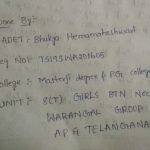 Done By:-
CADET:- Bhukya Hemamaheshwari
Reg No:- TS19SWA201605
College:- Masterji degree & P.G. college
UNIT:- 8(T) GIRLS BTN NCC
WARANGAL GROUP
AP & TELANGANA